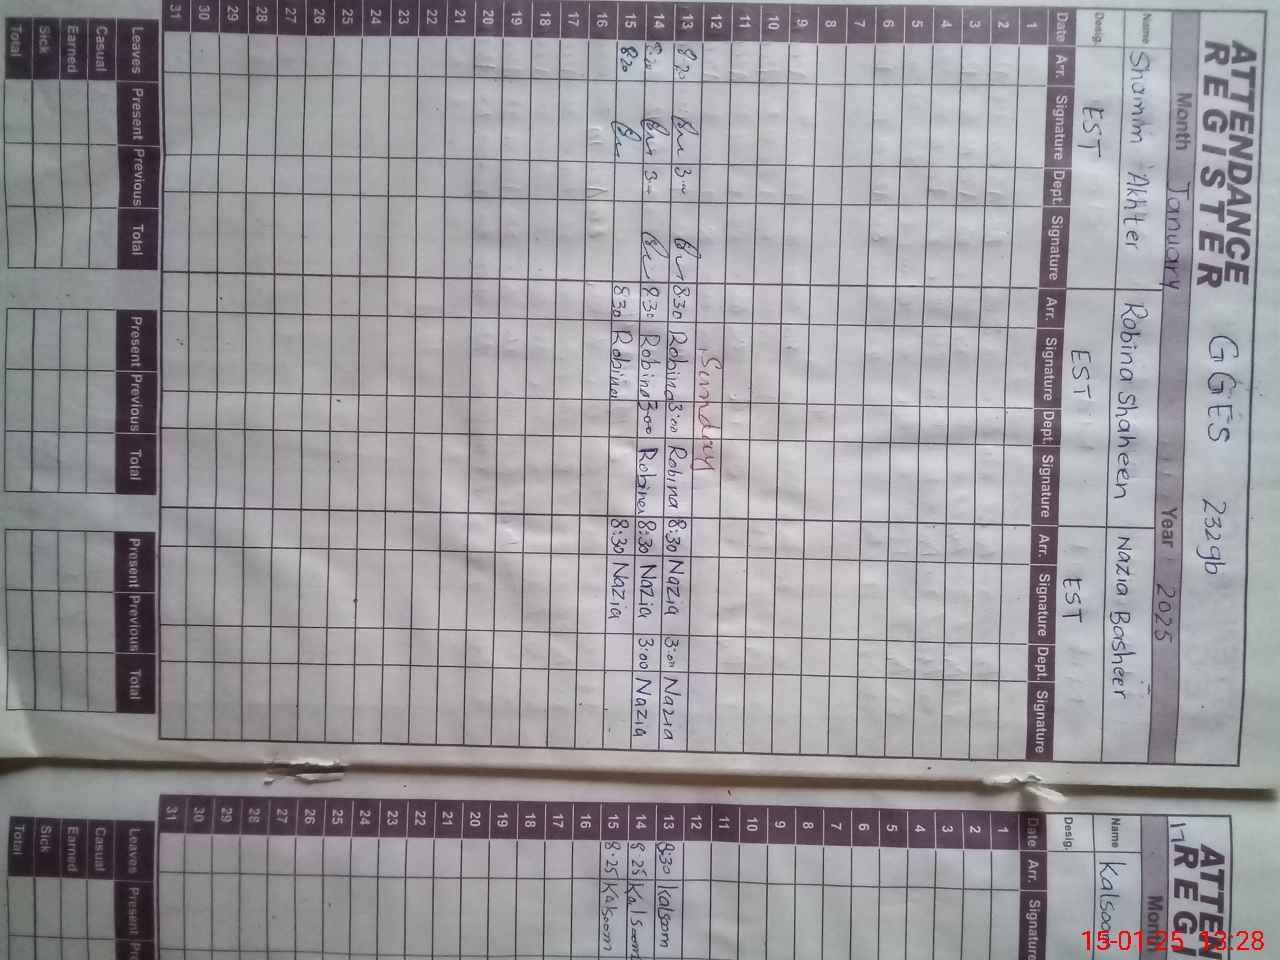 ATTENDANCE REGISTER GGES 232gb
Month January Year 2025
Name Shamim Akhter Robina Shaheen Nazia Basheer
Desig. EST EST EST
Date Arr. Signature Dept. Signature Arr. Signature Dept. Signature Arr. Signature Dept. Signature
1
2
3
4
5
6
7
8
9
10
11
12 Sunnday
13 8:30 Robina 3:00 Robina 8:30 Nazia 3:00 Nazia
14 8:30 Robina 3:00 Robina 8:30 Nazia 3:00 Nazia
15 820 830 Robina 8:30 Nazia
16
17
18
19
20
21
22
23
24
25
26
27
28
29
30
31
Leaves Present Previous Total Present Previous Total Present Previous Total
Casual
Earned
Sick
Total
ATTEN
REGI
Month
Name Kalsoom
Desig.
Date Arr. Signature
1
2
3
4
5
6
7
8
9
10
11
12
13 8:30 Kalsoom
14 8:25 Kalsoom
15 8:25 Kalsoom
16
17
18
19
20
21
22
23
24
25
26
27
28
29
30
31
Leaves Present
Casual
Earned
Sick
Total
15-01-25 13:28